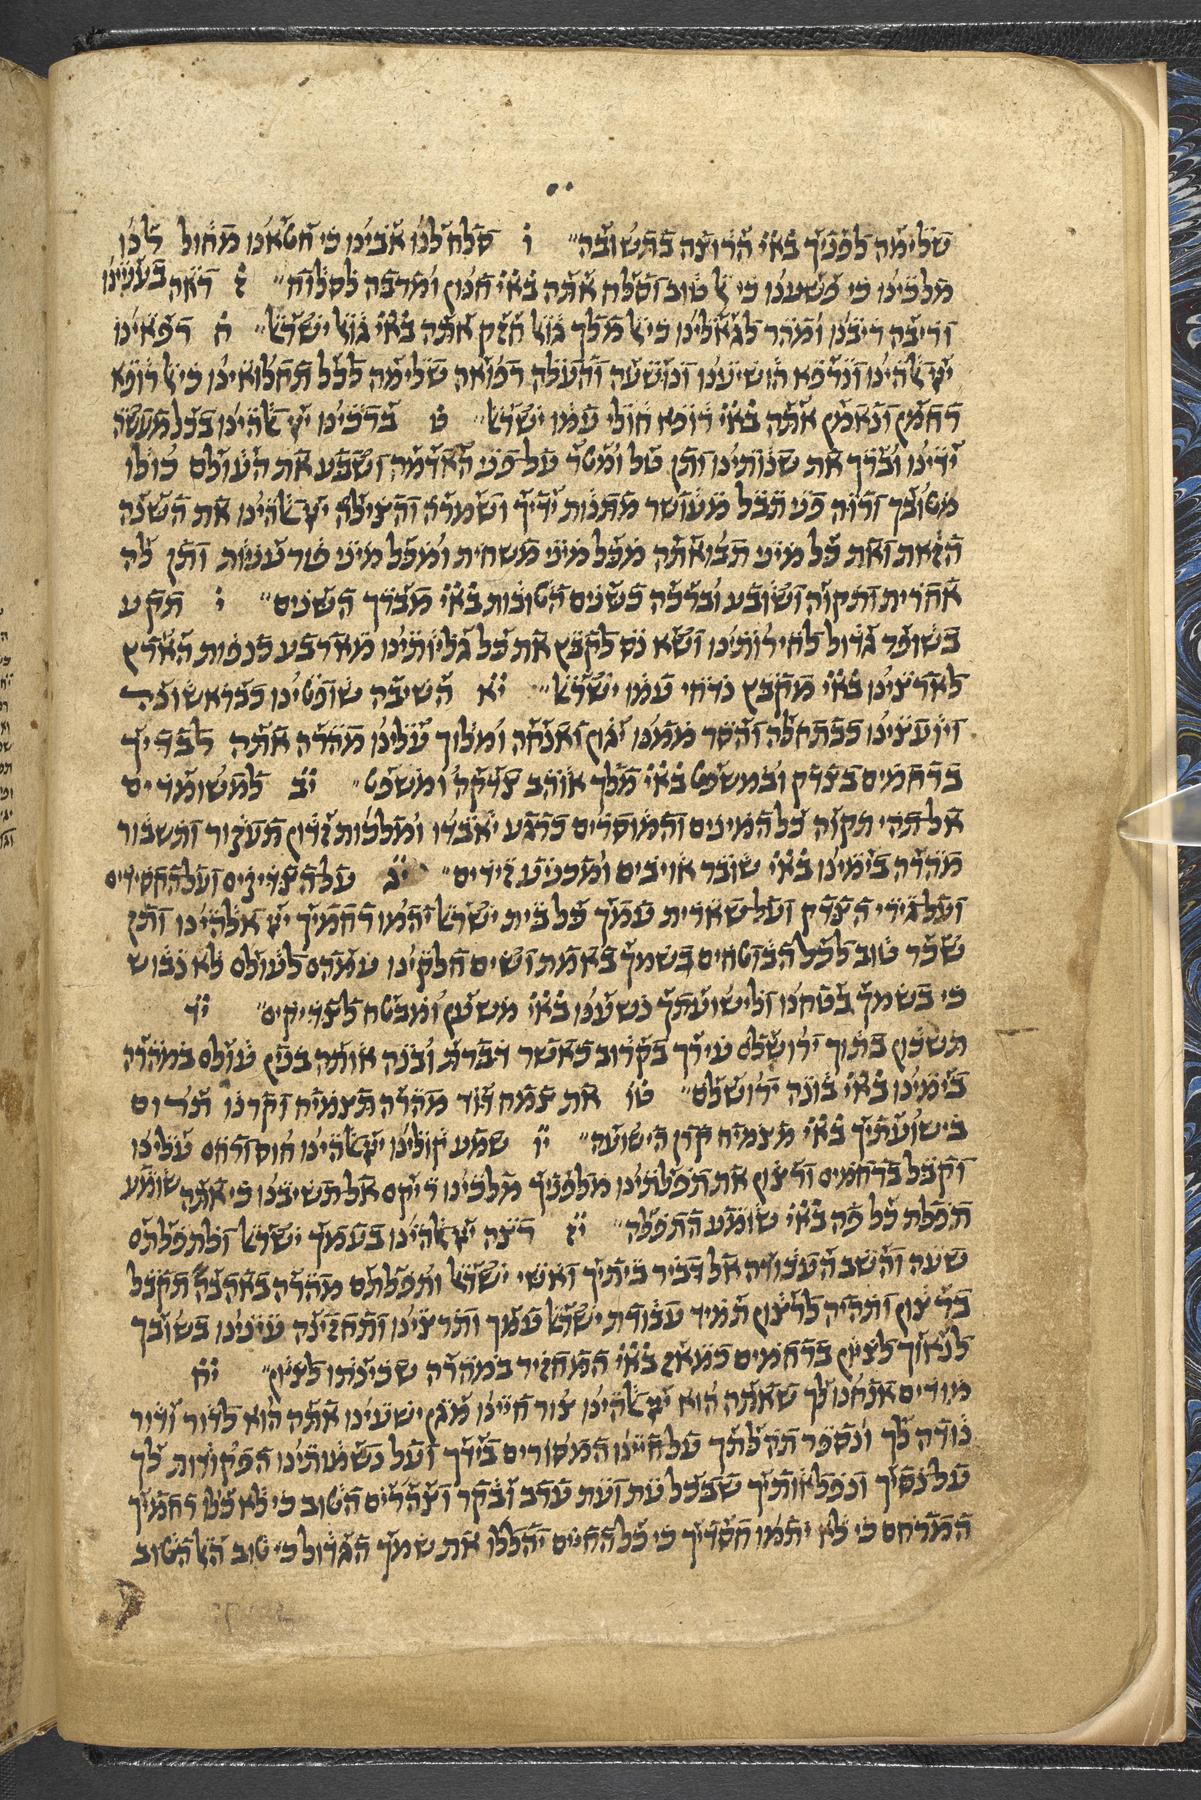 שלימה לפניך באי הרוצה בתשובה ו סלח לנו אבינו כי חטאנו מחול לנו
מלכינו כי פשענו כי אל טוב וסלח אתה באי חנון ומרבה לסלוח ז ראה בעניינו
וריבה ריבנו ומהר לגאלינו כי אל מלך גואל חזק אתה באי גואל ישראל ח רפאינו
יי אלהינו ונרפא הושיענו ונושעה והעלה רפואה שלימה לכל תחלואינו כי אל רופא
רחמן ונאמן אתה באי רופא חולי עמו ישראל ט ברכינו יי אלהינו בכל מעשה
ידינו וברך את שנותינו ותן טל ומטר על פני האדמה ושבע את העולם כולו
מטובך ורוה פני תבל מעושר מתנות ידיך ושמרה והצילה יי אלהינו את השנה
הזאת ואת כל מיני תבואתה מכל מיני משחית ומכל מיני פורעניות ותן לה
אחרית ותקוה ושובע וברכה כשנים הטובות באי מברך השנים י תקע
בשופר גדול לחירותינו ושא נס לקבץ את כל גליותינו מארבע כנפות הארץ
לארצינו באי מקבץ נדחי עמו ישראל יא השיבה שופטינו כבראשונה
ויועצינו כבתחלה והסר ממנו יגון ואנחה ומלוך עלינו מהרה אתה לבדיך
ברחמים בצדק ובמשפט באי מלך אוהב צדקה ומשפט יב למשומדים
אל תהי תקוה כל המינים והמוסרים כרגע יאבדו ומלכות זדון תעקור ותשבור
מהרה בימינו באי שובר אויבים ומכניע זידים יג על הצדיקים ועל החסידים
ועל גירי הצדק ועל שארית עמך כל בית ישראל יהמו רחמיך יי אלהינו ותן
שכר טוב לכל הבוטחים בשמך באמת ושים חלקינו עמהם לעולם לא נבוש
כי בשמך בטחנו ולישועתך נשענו באי משען ומבטח לצדיקים יד
תשכון בתוך ירושלם עירך בקרוב כאשר דברת ובנה אותה בנין עולם במהרה
בימינו באי בונה ירושלם טו את צמח דוד מהרה תצמיח וקרנו תרום
בישועתיך באי מצמיח קרן הישועה יו שמע קולינו יי אלהינו חוס ורחם עלינו
וקבל ברחמים וברצון את תפלתינו מלפניך מלכינו ריקם אל תשיבנו כי אתה שומע
תפלת כל פה באי שומע התפלה יז רצה יי אלהינו בעמך ישראל ולתפלתם
שעה והשב העבודה אל דביר ביתיך ואשי ישראל ותפלתם מהרה באהבה תקבל
ברצון ותהיה לרצון תמיד עבודת ישראל עמך ותרצינו ותחזינה עינינו בשובך
לנאוך לציון ברחמים כמאז באי המחזיר במהרה שכינתו לציון יח
מודים אנחנו לך שאתה הוא יי אלהינו צור חיינו מגן ישעינו אתה הוא לדור ודור
נודה לך ונספר תהלתך על חיינו המסורים בידך ועל נשמותינו הפקודות לך
על נסיך ונפלאותיך שבכל עת ועת ערב ובקר וצהרים הטוב כי לא כלו רחמיך
המרחם כי לא יתמו חסדיך כי כל החיים יהללו את שמך הגדול כי טוב האל הטוב